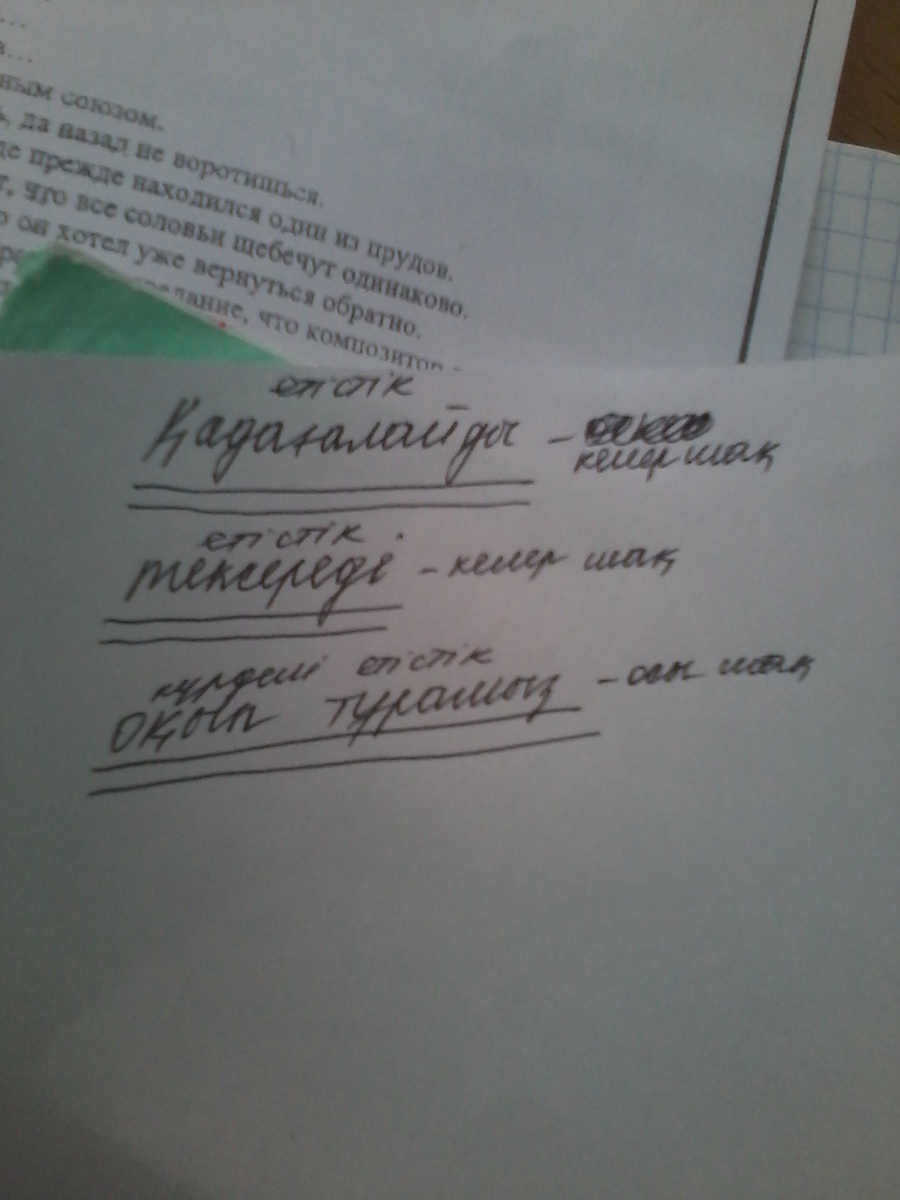 в...
ным союзом.
ь, да назад не воротишься.
де прежде находился один из прудов.
т, что все соловьи щебечут одинаково.
о он хотел уже вернуться обратно.
едание, что композитор
етістік
Қадағалайды – келер шақ
етістік
тексереді – келер шақ
күрделі етістік
оқып тұрамыз – осы шақ